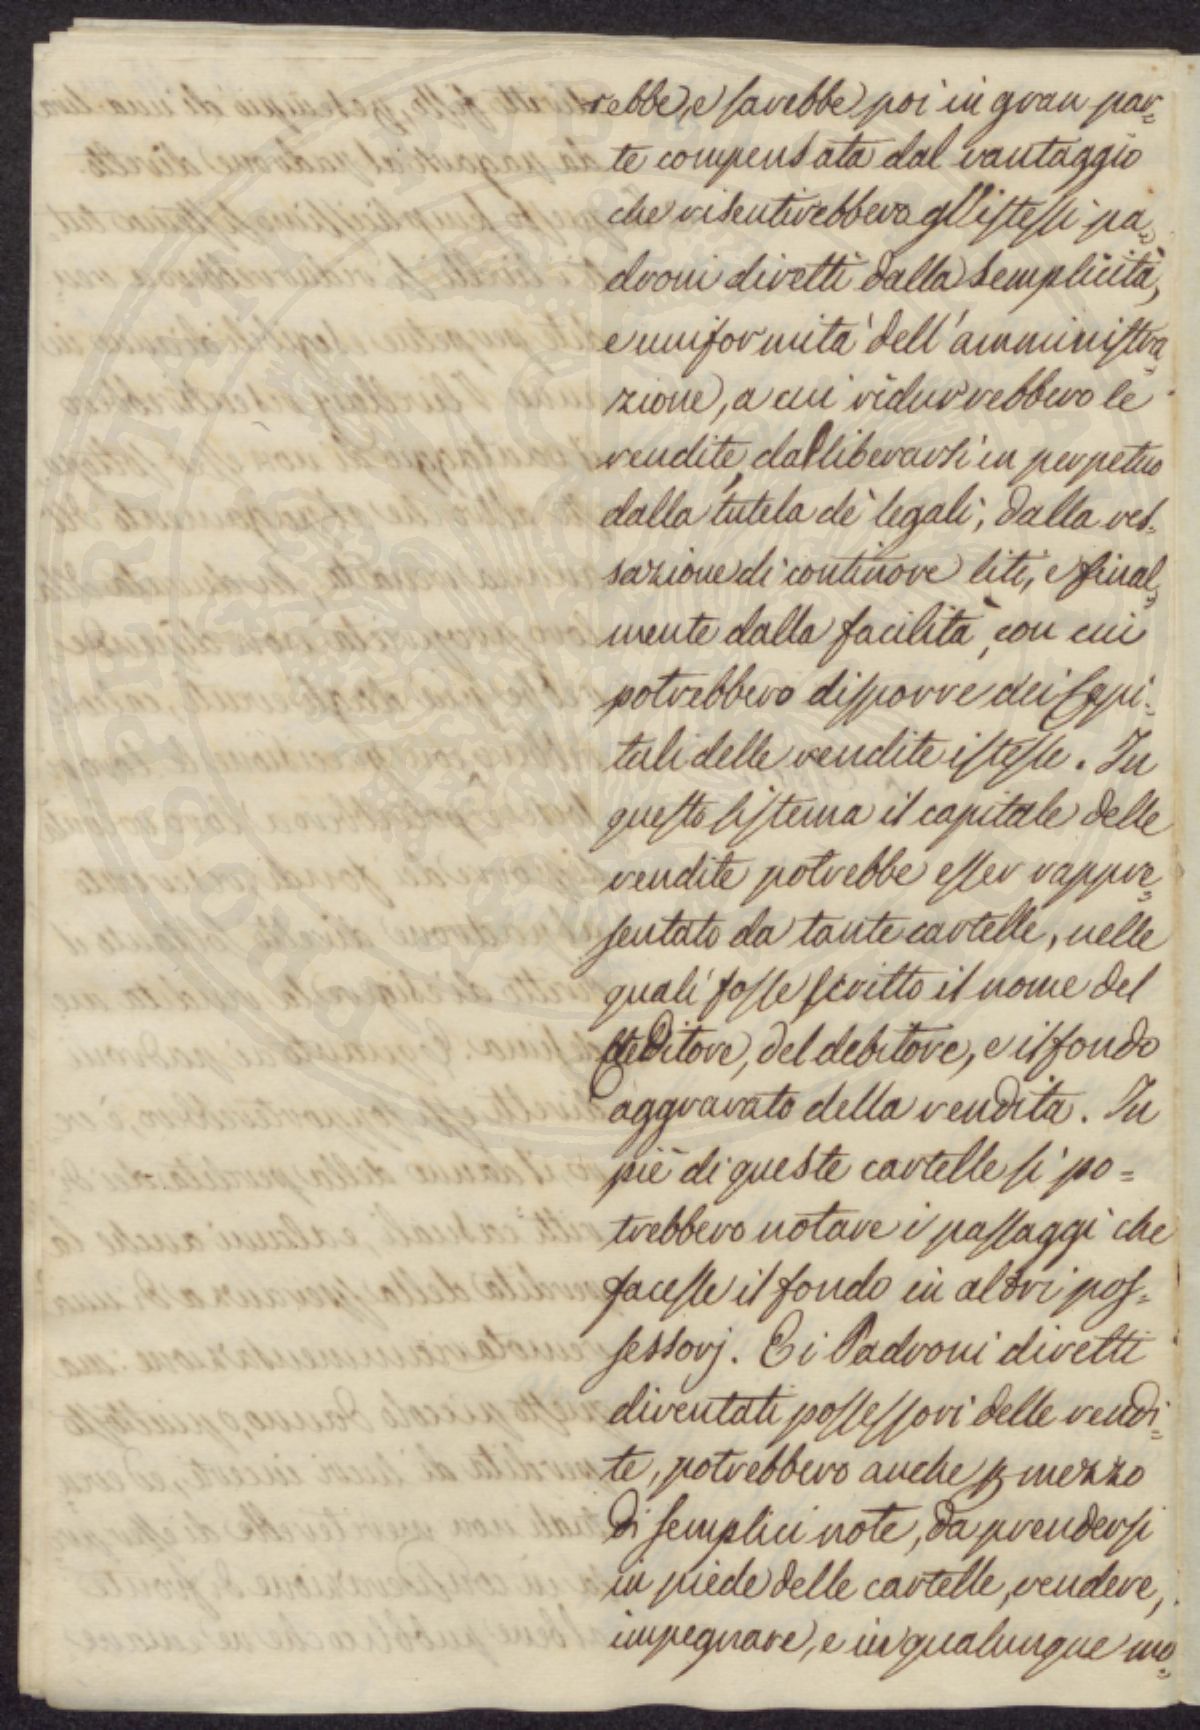 rebbe, e sarebbe poi in gran par=
te compensata dal vantaggio
che risentirebbero gl'istessi pa=
droni diretti dalla semplicità,
e uniformità dell'amministra=
zione, a cui ridurrebbero le
rendite, dal liberarsi in perpetuo
dalla tutela de' legali, dalla ves=
sazione di continove liti, e final=
mente dalla facilità, con cui
potrebbero disporre dei Capi=
tali delle rendite istesse. In
questo sistema il capitale delle
rendite potrebbe esser rappre=
sentato da tante cartelle, nelle
quali fosse scritto il nome del
Creditore, del debitore, e il fondo
aggravato della rendita. In
piè di queste cartelle si po=
trebbero notare i passaggi che
facesse il fondo in altri pos=
sessorj. E i Padroni diretti
diventati possessori delle rendi=
te, potrebbero anche p mezzo
di semplici note, da prendersi
in piede delle cartelle, vendere,
impegnare, e in qualunque mo=